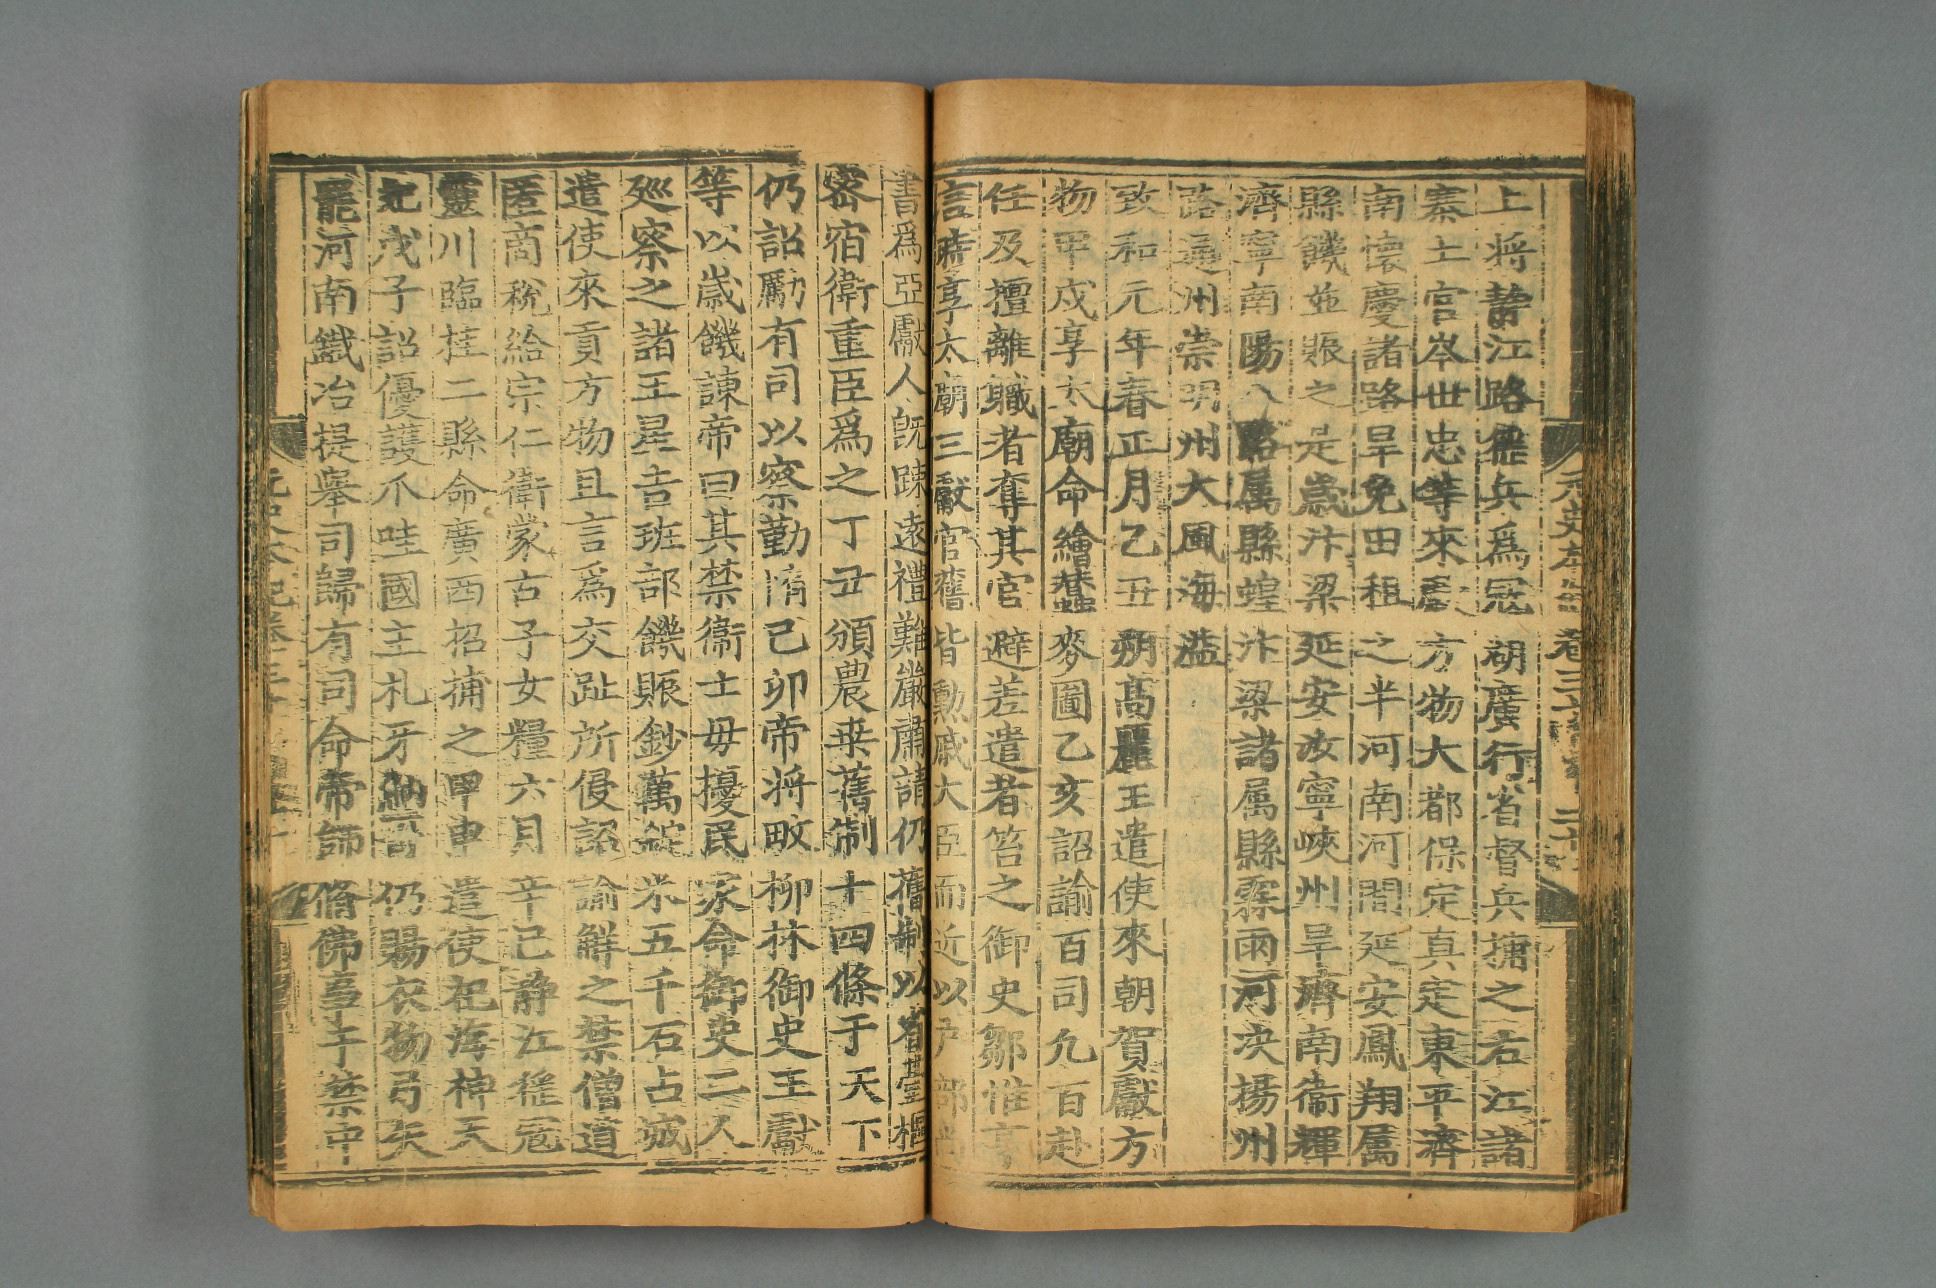 上将静江路猺兵爲冦湖廣行省督兵捕之右江諸
寨土官岑世忠等來獻方物大都保定真定東平濟
南懷慶諸路旱免田租之半河南河間延安鳳翔属
縣饑並賬之是歳汴梁延安汝寧峽州旱濟南衛輝
濟寧南陽八路属縣蝗汴梁諸属縣霖雨河决揚州
路通州崇明州大風海溢
致和元年春正月乙丑朔髙麗王遣使來朝賀獻方
物甲戍享太廟命繪蠶麥圖乙亥詔諭百司凢百赴
任及擅離職者奪其官避差遣者笞之御史鄒惟亨
言時享太廟三獻官舊皆勲戚大臣而近以戸部尚
書爲亞獻人旣踈遠禮難嚴肅請仍舊制以省臺樞
宻宿衛重臣爲之丁丑頒農桒舊制十四條于天下
仍詔勵有司以察勤惰己卯帝将畋柳林御史王獻
等以歳饑諫帝曰其禁衛士毋擾民家命御史二人
廵察之諸王星吉班部饑賬鈔萬錠米五千石占城
遣使來貢方物且言爲交趾所侵詔諭解之禁僧道
匿商稅給宗仁衛蒙古子女糧六月辛己靜江猺冦
靈川臨桂二縣命廣西招捕之甲申遣使祀海神天
妃戊子詔優護爪哇國主札牙納哥仍賜衣物弓矢
罷河南鐵冶提舉司歸有司命帝師脩佛事于禁中